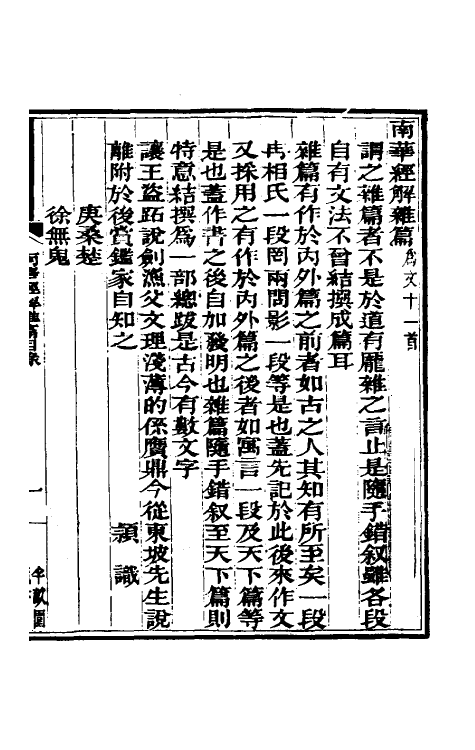 南華經解雜篇 爲文十一首
謂之雜篇者不是於道有龐雜之言止是隨手錯叙雖各段
自有文法不曾結撰成篇耳
雜篇有作於內外篇之前者如古之人其知有所至矣一段
冉相氏一段罔兩問影一段等是也蓋先記於此後來作文
又採用之有作於內外篇之後者如寓言一段及天下篇等
是也蓋作書之後自加發明也雜篇隨手錯叙至天下篇則
特意結撰爲一部總跋是古今有數文字
讓王盜跖說劍漁父文理淺薄的係贗鼎今從東坡先生說
離附於後賞鑑家自知之 穎識
庚桑楚
徐無鬼
南華經解雜篇目錄 一 半畝園